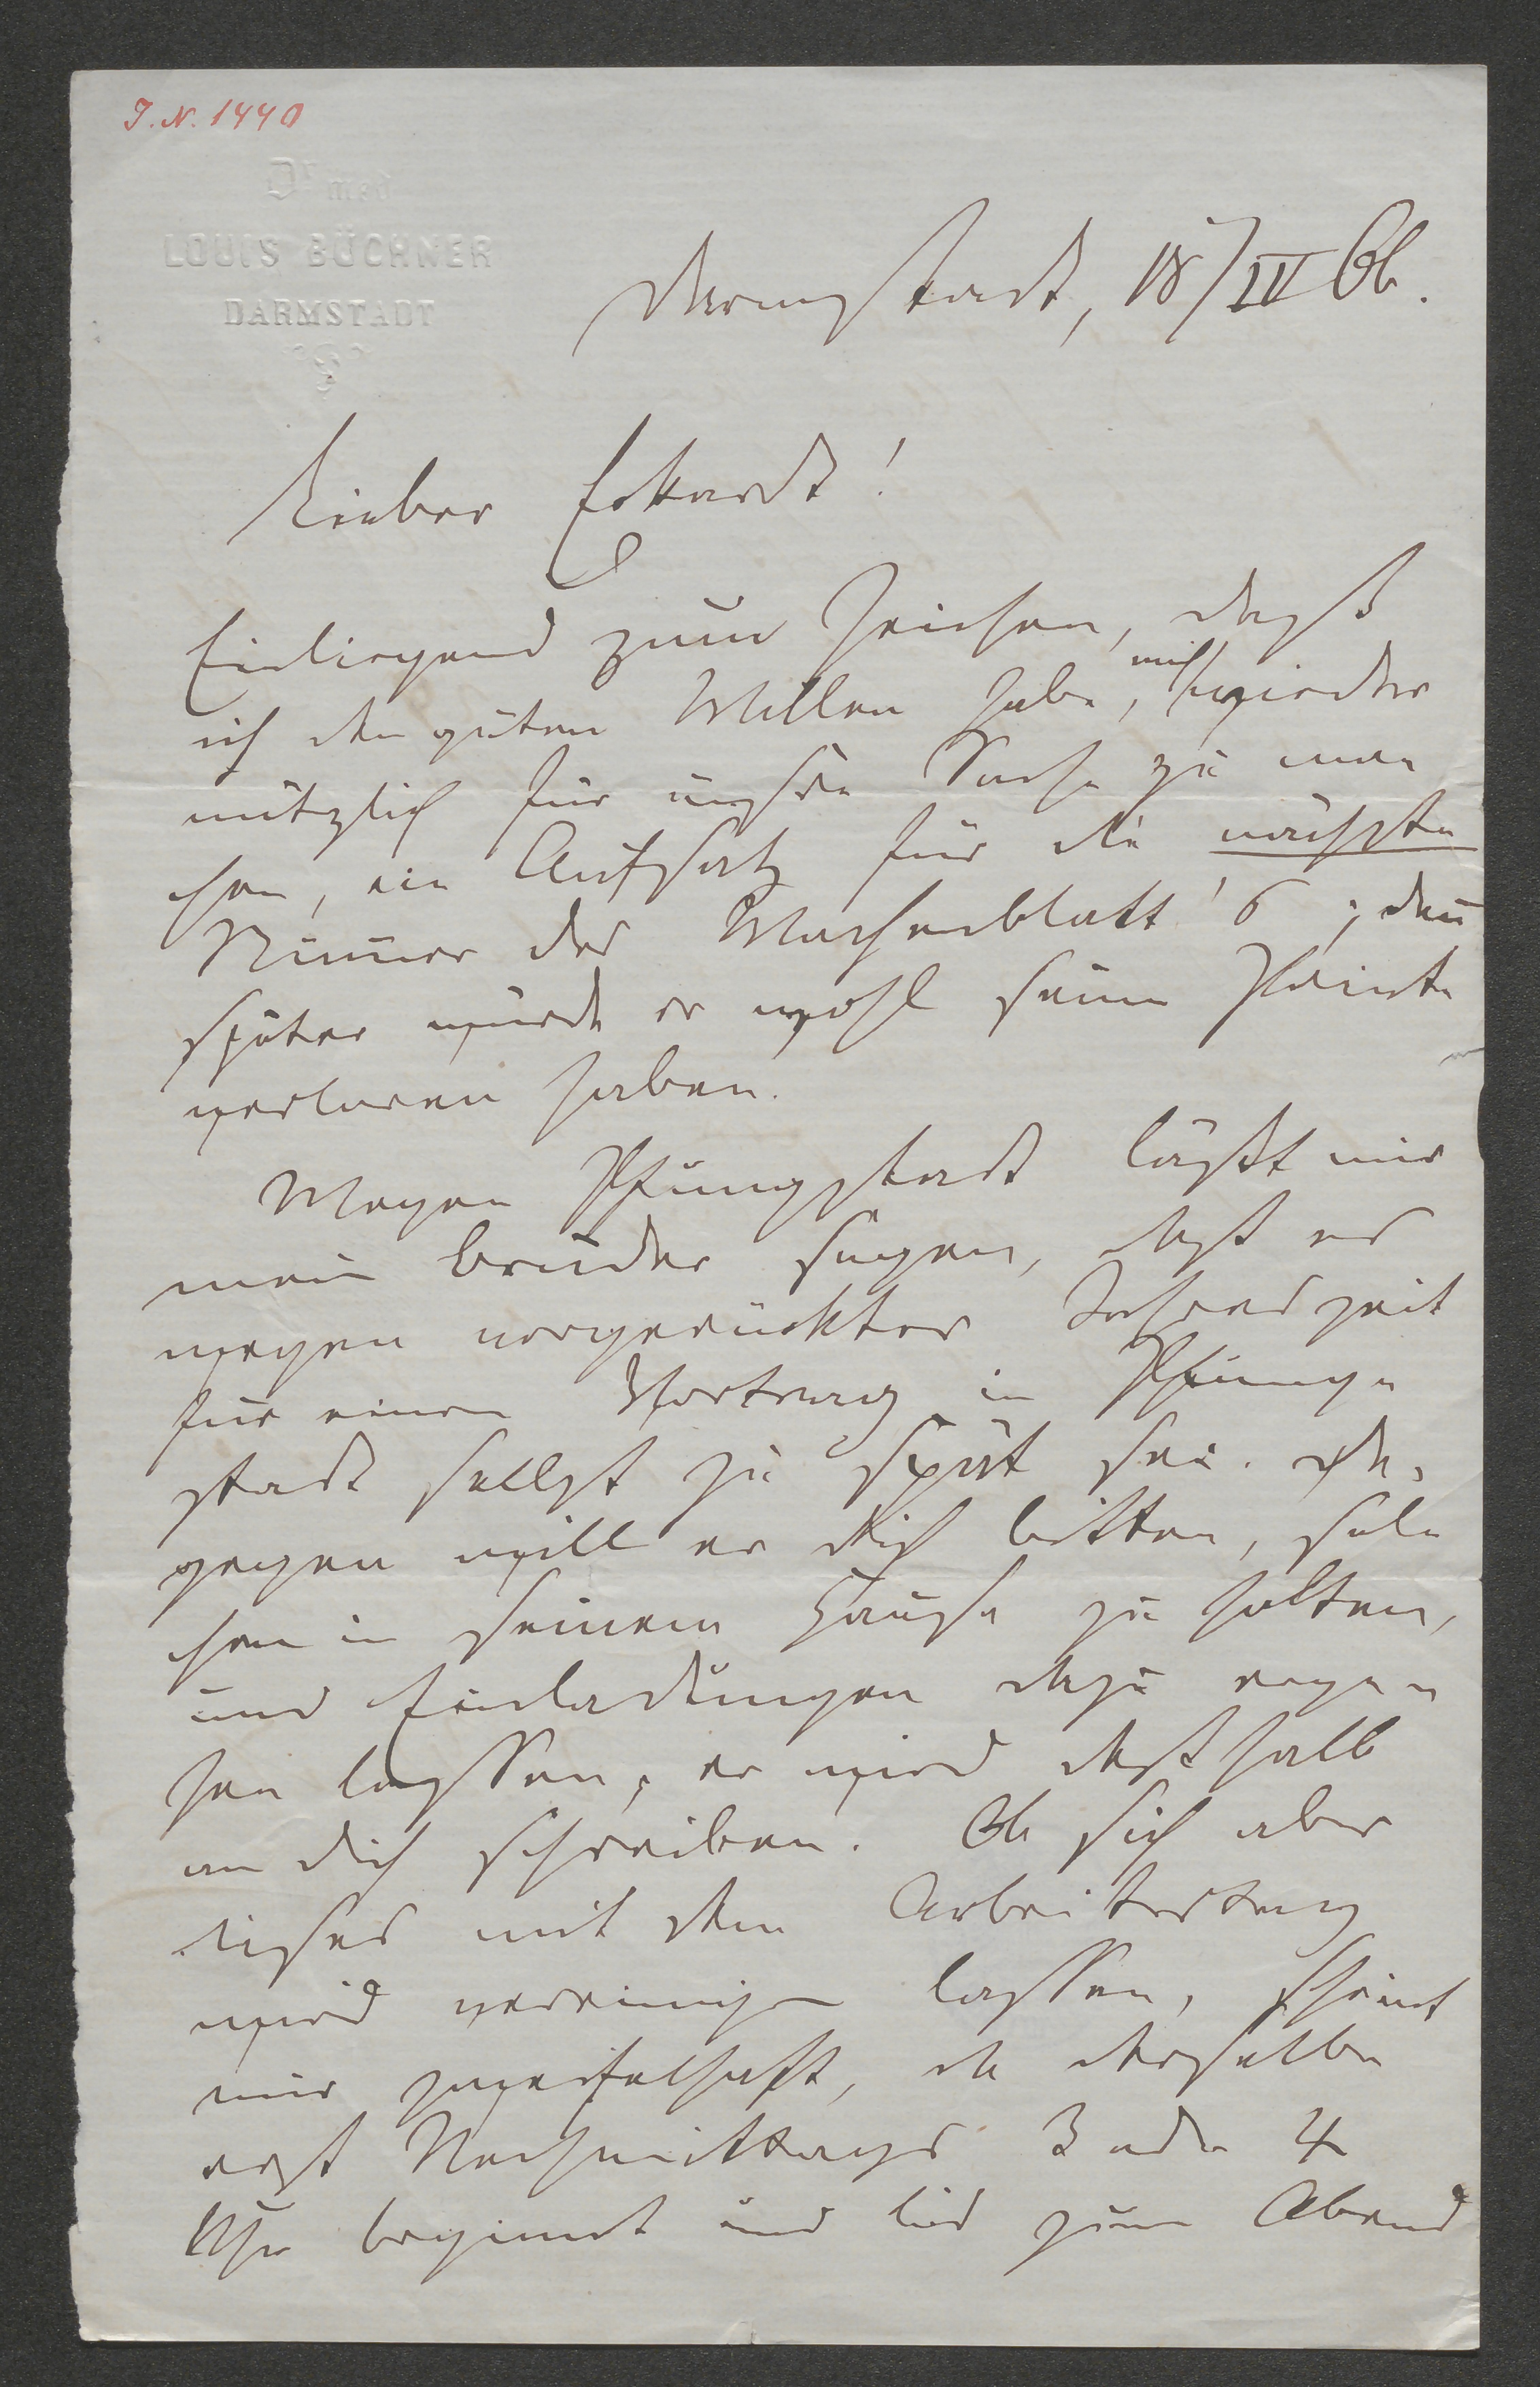 J. N. 1440
Dr med
LOUIS BÜCHNER
DARMSTADT
Darmstadt, 18/IV 66.
Lieber Eckardt!
Einliegend zum Zeichen, daß
ich den guten Willen habe, mich wieder
nützlich für unsre Sache zu ma-
chen, ein Aufsatz für die nächste
Numer des Wochenblatt's; den
später würde er wohl seine Pointe
verloren haben.
Wegen Pfungstadt läßt mir
mein Bruder sagen, daß es
wegen vorgerückter Jahreszeit
für einen Vortrag in Pfung-
stadt selbst zu spät sei. Da-
gegen will er dich bitten, sol-
chen in seinem Hause zu halten,
und Einladungen dazu erge-
hen lassen; er wird deßhalb
an dich schreiben. Ob sich aber
dieses mit dem Arbeitertag
wird vereinigen lassen, scheint
mir zweifelhaft, da derselbe
erst Nachmittags 3 oder 4
Uhr beginnt und bis zum Abend